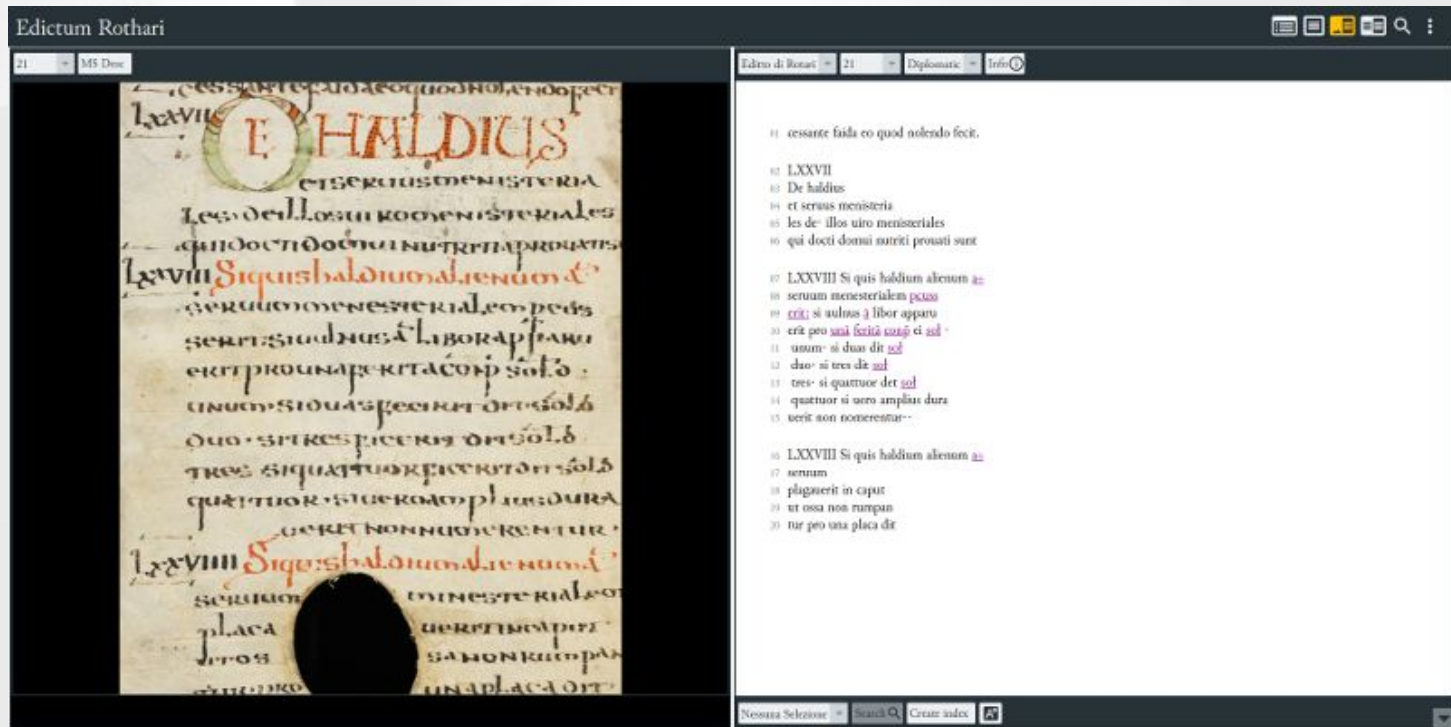 Edictum Rothari
21 MS Desc
cessante faida eo quod nolendo feci
LXXVII DE HALDIUS
et seruus menisteria
les· de illos uiro menisteriales
qui docti domui nutriti prouati
LXXVIII Si quis haldium alienum
seruum menesterialem
serit: si uulnus a libor apparu
erit pro una ferita conp sold ·
unum· si duas fecerit dit sold
duo· si tres ficerit dit sold
tres si quattuor ficerit dit sold
quattuor· si uero amplius dura
uerit non numerentur·
LXXVIIII Si quis haldium alienum
seruum ministerialem
placa uerit in caput
ut os sa non rumpan
tur pro una placa dit
Editto di Rotari 21 Diplomatic Info
01 cessante faida eo quod nolendo fecit.
02 LXXVII
03 De haldius
04 et seruus menisteria
05 les de· illos uiro menisteriales
06 qui docti domui nutriti prouati sunt
07 LXXVIII Si quis haldium alienum a÷
08 seruum menesterialem pcuss
09 erit: si uulnus ā libor apparu
10 erit pro unā feritā conp̄ ei soł ·
11 unum· si duas dit soł
12 duo· si tres dit soł
13 tres· si quattuor det soł
14 quattuor si uero amplius dura
15 uerit non nomerentur··
16 LXXVIII Si quis haldium alienum a÷
17 seruum
18 plagauerit in caput
19 ut ossa non rumpan
20 tur pro una placa dit
Nessuna Selezione Search Create index